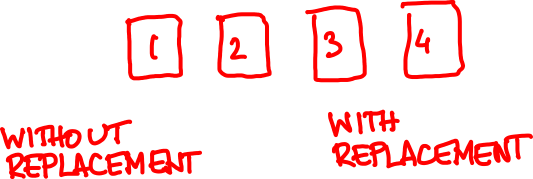 1 2 3 4
WITHOUT
REPLACEMENT
WITH
REPLACEMENT